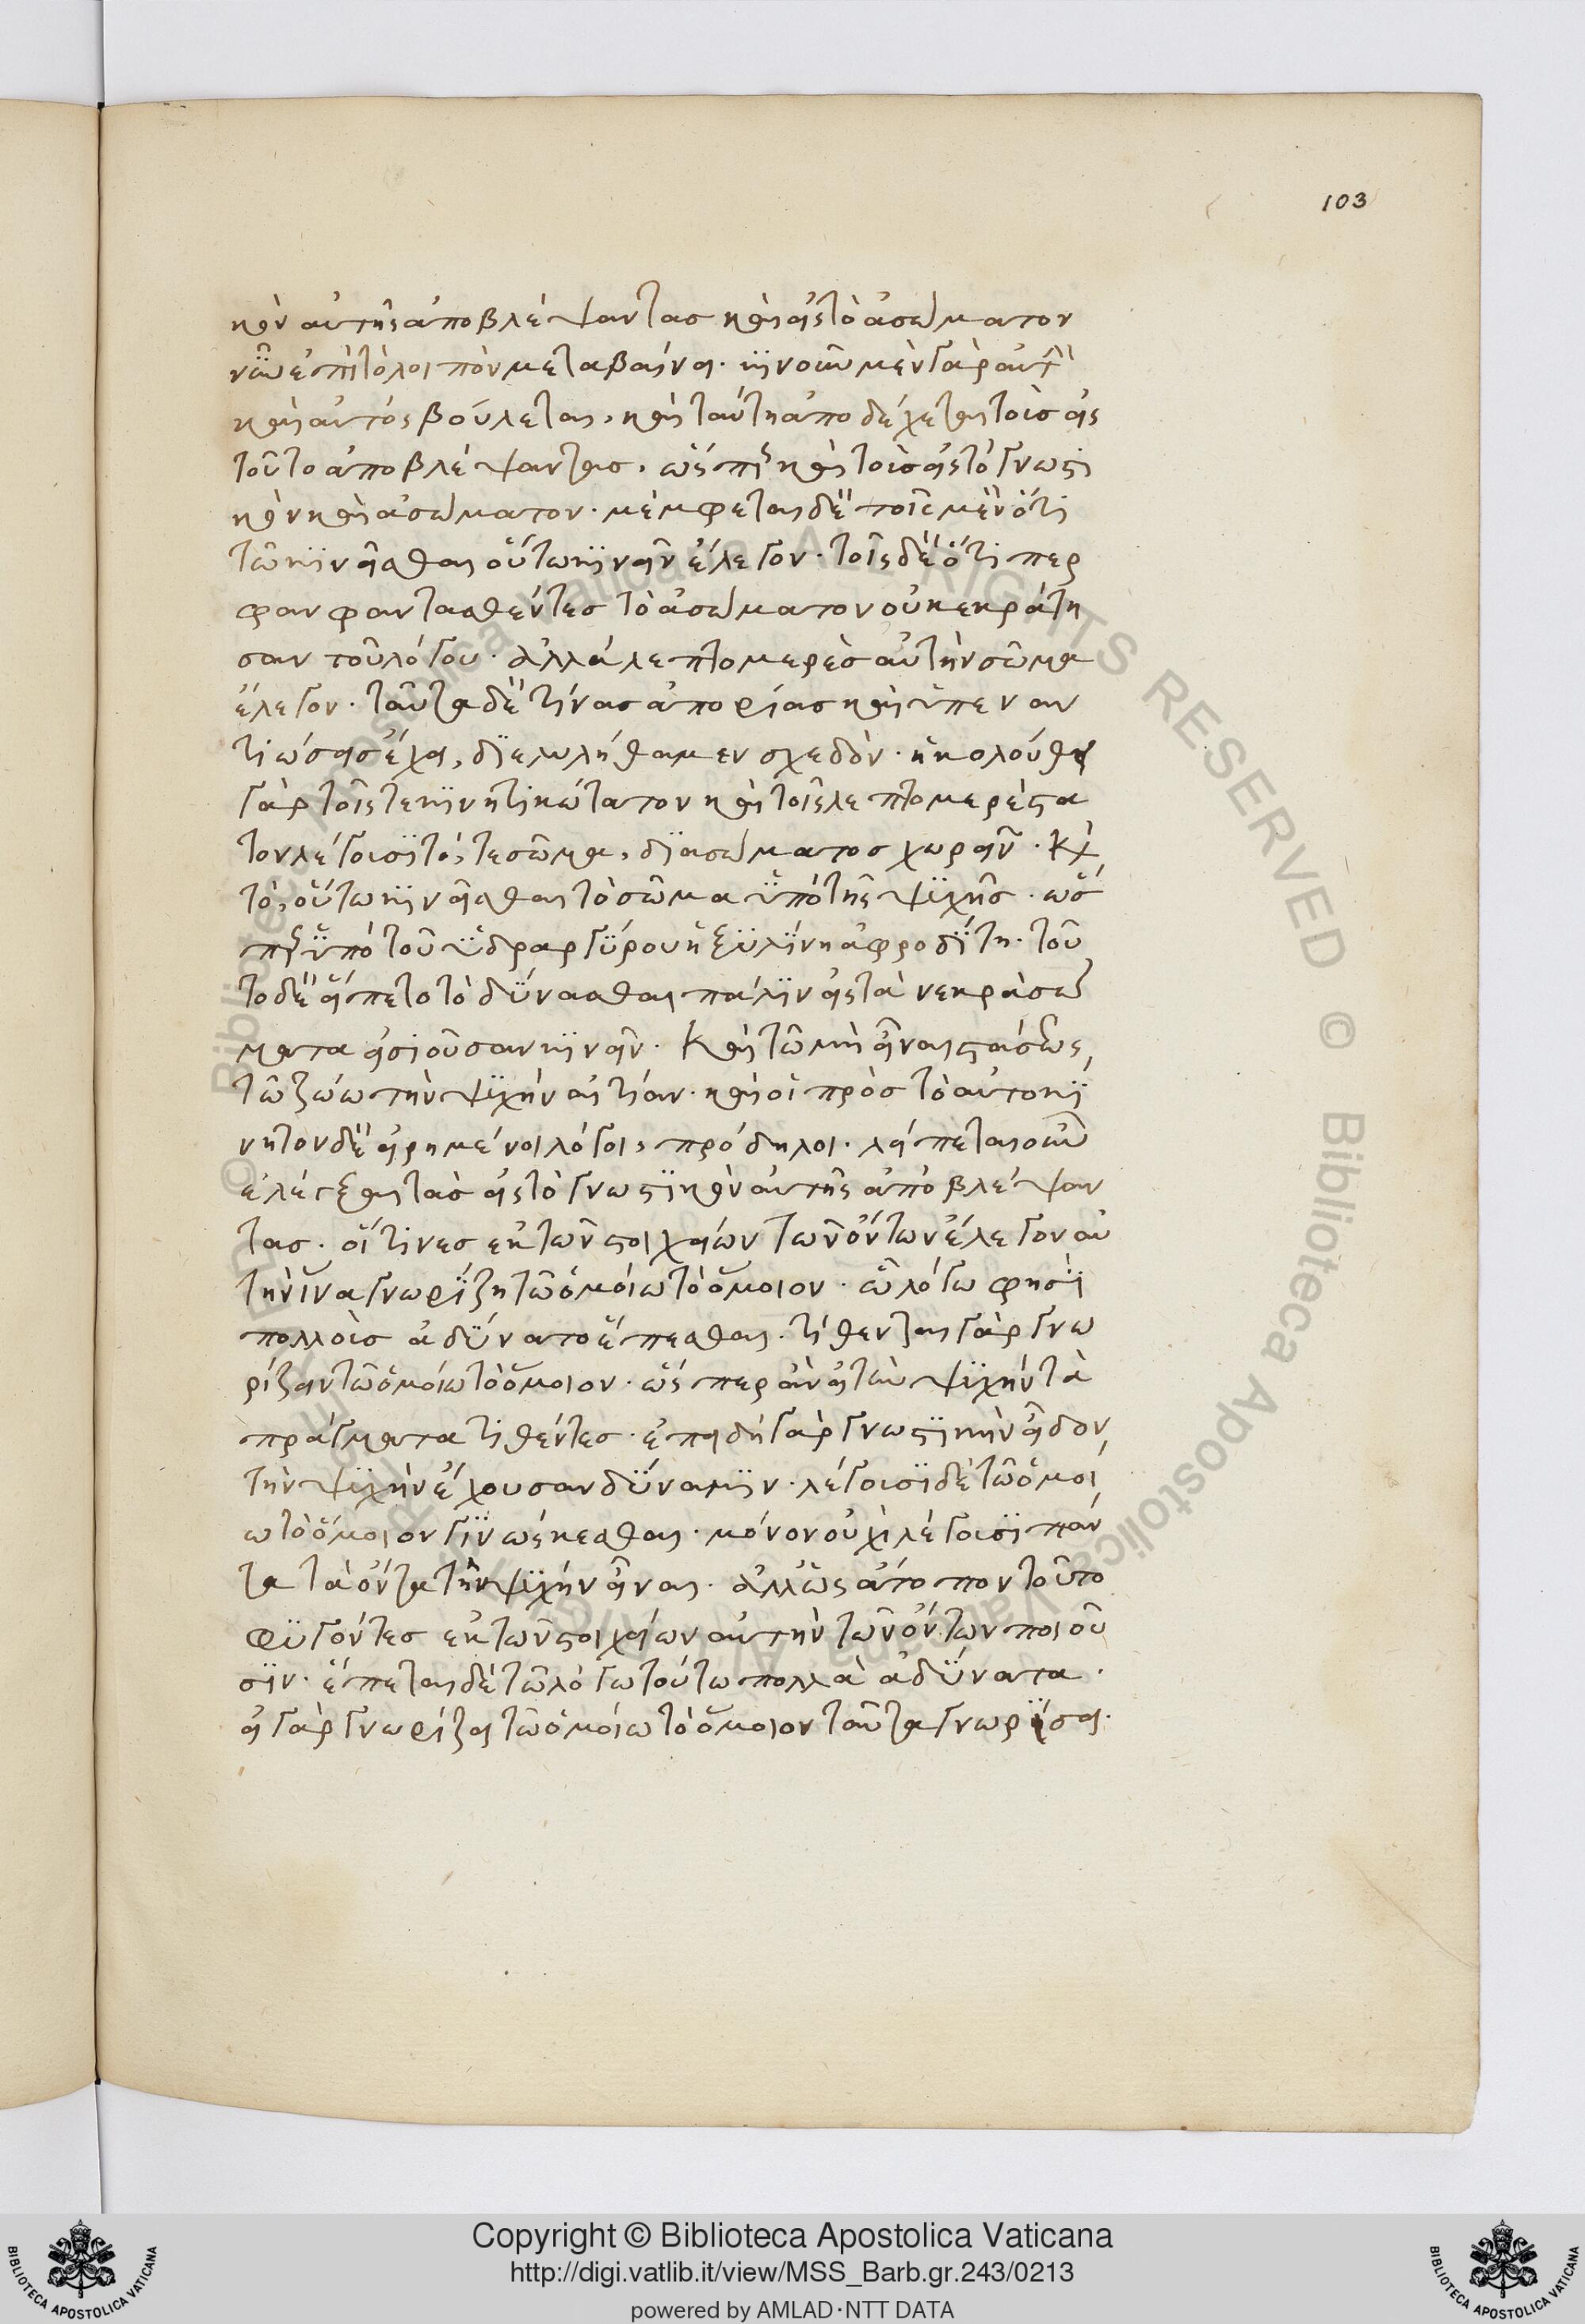 103
κὸν αὐτῆς ἀποβλέψαντας καὶ εἰς τὸ ἀσώματον
νῦν ἐπὶ τὸ λοιπὸν μεταβαίνει. κινοῦν μὲν γὰρ αὐτὴν
καὶ αὐτὸς βούλεται, καὶ ταύτῃ ἀποδέχεται τοὺς εἰς
τοῦτο ἀποβλέψαντας. ὥσπερ καὶ τοὺς εἰς τὸ γνωστι
κὸν καὶ ἀσώματον. μέμφεται δὲ τοῖς μὲν ὅτι
τῶ κινεῖσθαι οὕτω κινεῖν ἔλεγον. τοῖς δὲ ὅτι περ
φανφαντασθέντες τὸ ἀσώματον οὐκ ἐκράτη
σαν τοῦ λόγου. ἀλλὰ λεπτομερὲς αὐτὴν σῶμα
ἔλεγον. ταῦτα δὲ τίνας ἀπορίας καὶ ὑπεναν
τιώσεις ἔχει, διεληλύθαμεν σχεδόν. ἠκολούθει
γὰρ τοῖς τε κινητικώτατον καὶ τοῖς λεπτομερέστα
τον λέγουσι τό, τε σῶμα, διὰ σώματος χωρεῖν. Καὶ
τὸ, οὕτω κινεῖσθαι τὸ σῶμα ὑπὸ τῆς ψυχῆς. ὥσ
περ ὑπὸ τοῦ ὑδραργύρου ἡ ξυλίνη ἀφροδίτη. τού
το δὲ εἵπετο τὸ δύνασθαι πάλιν εἰς τὰ νεκρὰ σώ
ματα εἰσιοῦσαν κινεῖν. Καὶ τῶ μὴ εἶναι στάσεως
τῶ ζώω τὴν ψυχὴν αἰτίαν. καὶ οἱ πρὸς τὸ αὐτοκί
νητον δὲ εἰρημένοι λόγοι, πρόδηλοι. λείπεται οὖν
ἐλέγξαι τὰς εἰς τὸ γνωστικὸν αὐτῆς ἀποβλέψαν
τας. οἵτινες ἐκ τῶν στοιχείων τῶν ὄντων ἔλεγον αὐ
τὴν ἵνα γνωρίζη τῶ ὁμοίω τὸ ὅμοιον. ὧ λόγω φησὶ
πολλοῖς ἀδύνατο ἕπεσθαι. τίθενται γὰρ γνω
ρίζειν τῶ ὁμοίω τὸ ὅμοιον. ὥσπερ ἂν εἰ τὴν ψυχὴν τὰ
πράγματα τιθέντες. ἐπειδὴ γὰρ γνωστικὴν εἶδον
τὴν ψυχὴν ἔχουσαν δύναμιν. λέγουσι δὲ τῶ ὁμοί
ω τὸ ὅμοιον γινώσκεσθαι. μόνον οὐχὶ λέγουσι πάν
τα τὰ ὄντα τὴν ψυχὴν εἶναι. ἀλλ' ὡς ἄτοπον τοῦτο
φυγόντες ἐκ τῶν στοιχείων αὐτὴν τῶν ὄντων ποιοῦ
σιν. ἕπεται δὲ τῶ λόγω τούτω πολλὰ ἀδύνατα.
εἰ γὰρ γνωρίζει τῶ ὁμοίω τὸ ὅμοιον ταῦτα γνωρίσει.
Copyright © Biblioteca Apostolica Vaticana
http://digi.vatlib.it/view/MSS_Barb.gr.243/0213
powered by AMLAD·NTT DATA